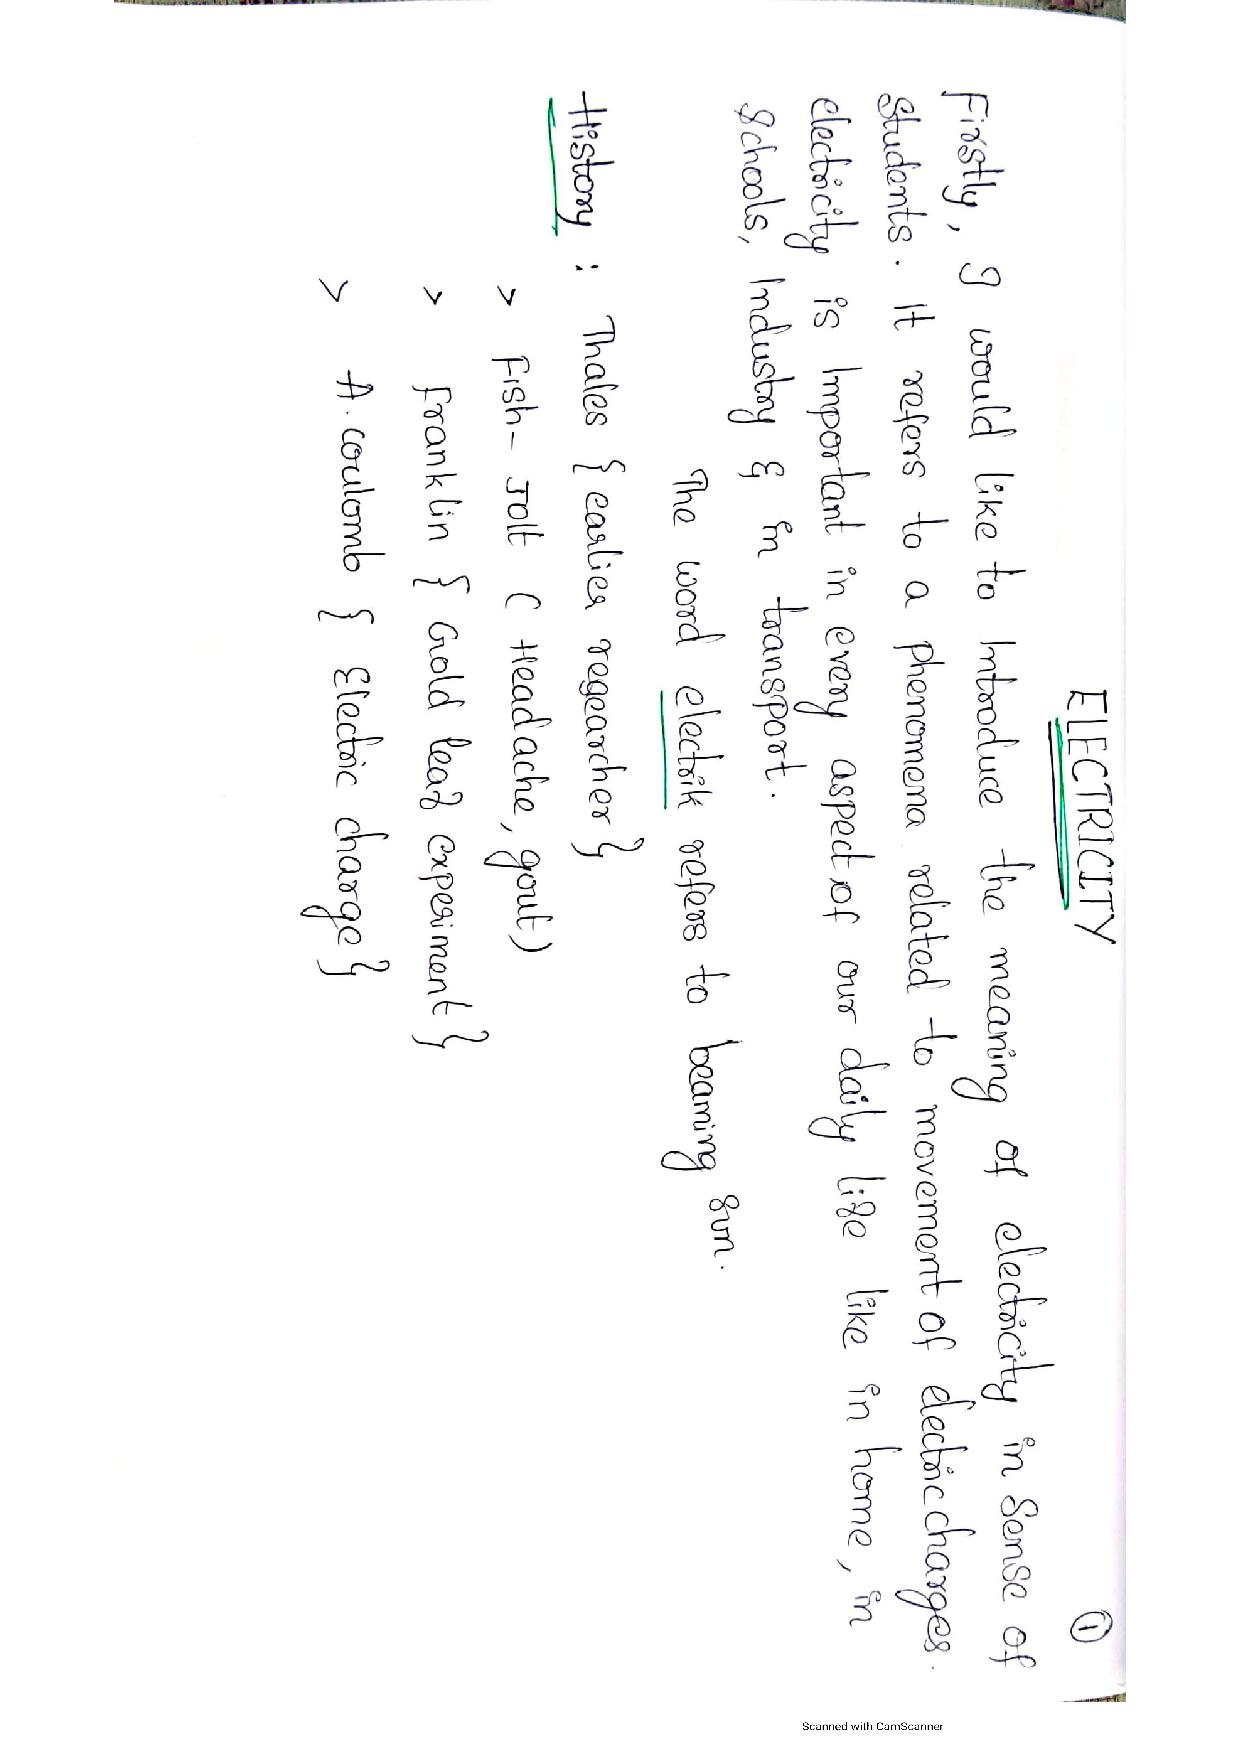 ELECTRICITY
1
Firstly, I would like to Introduce the meaning of electricity in Sense of
Students. It refers to a phenomena related to movement of electric charges.
electricity is Important in every aspect of our daily life like in home, in
Schools, Industry & in transport.
The word electrik refers to beaming sun.
History : Thales { earlier regearcher }
> Fish - Jolt ( Headache, gout )
> Franklin { Gold leaf experiment }
> A. coulomb { Electric charge }
Scanned with CamScanner